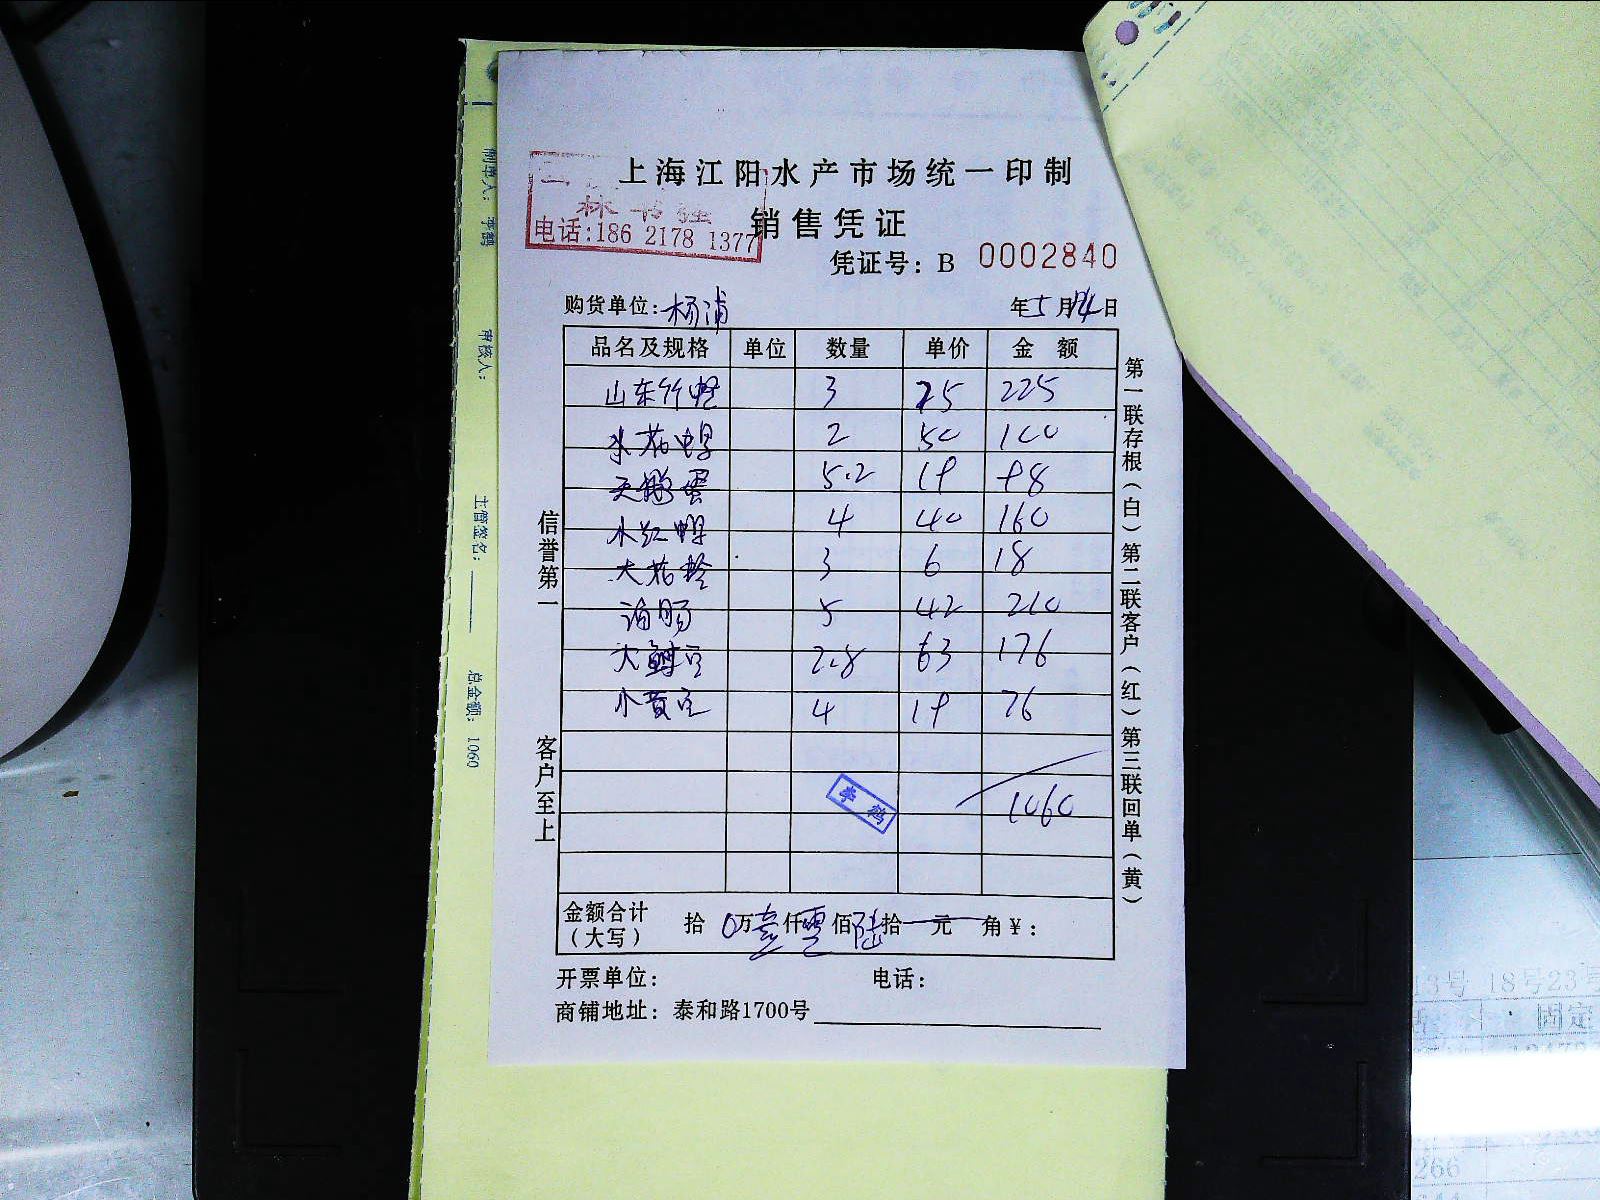 上海江阳水产市场统一印制
林书强
电话:186 2178 1377
销售凭证
凭证号: B 0002840
购货单位: 杨浦 年5月14日
品名及规格 单位 数量 单价 金额
山东竹蛏 3 75 225
水花甲 2 50 100
天鹅蛋 5.2 19 98
水红甲 4 40 160
大花 3 6 18
海肠 5 42 210
大 2.8 63 176
小黄 4 19 76
1060
李鹤
金额合计(大写) 拾 0万壹仟零佰陆拾一元 角¥:
开票单位: 电话:
商铺地址: 泰和路1700号
信誉第一 客户至上
第一联存根(白)第二联客户(红)第三联回单(黄)
制单人: 李鹤
审核人:
主管签名:
总金额: 1060
13号 18号23号
固定
266